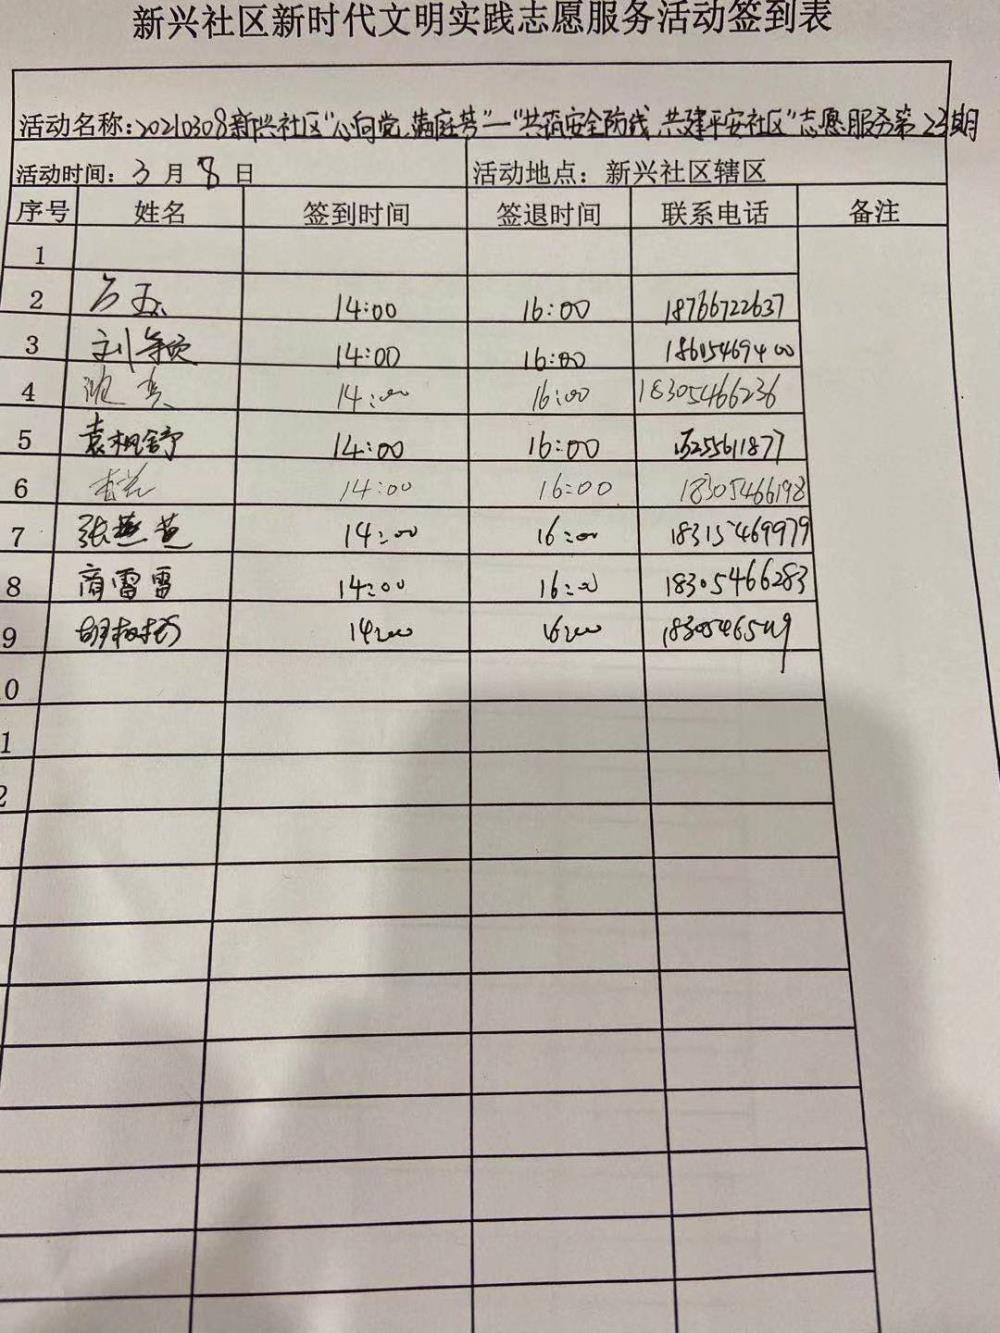 新兴社区新时代文明实践志愿服务活动签到表
活动名称:20210308新兴社区"心向党,满庭芳"—"共筑安全防线,共建平安社区"志愿服务第23期
活动时间: 3 月 8 日 活动地点: 新兴社区辖区
序号 姓名 签到时间 签退时间 联系电话 备注
1
2 14:00 16:00 18766722637
3 刘颖 14:00 16:00 18605469400
4 14:00 16:00 18305466236
5 袁枫舒 14:00 16:00 15255611877
6 14:00 16:00 18305466198
7 张燕芝 14:00 16:00 18315469979
8 商雷雷 14:00 16:00 18305466283
9 14:00 16:00
0
1
2